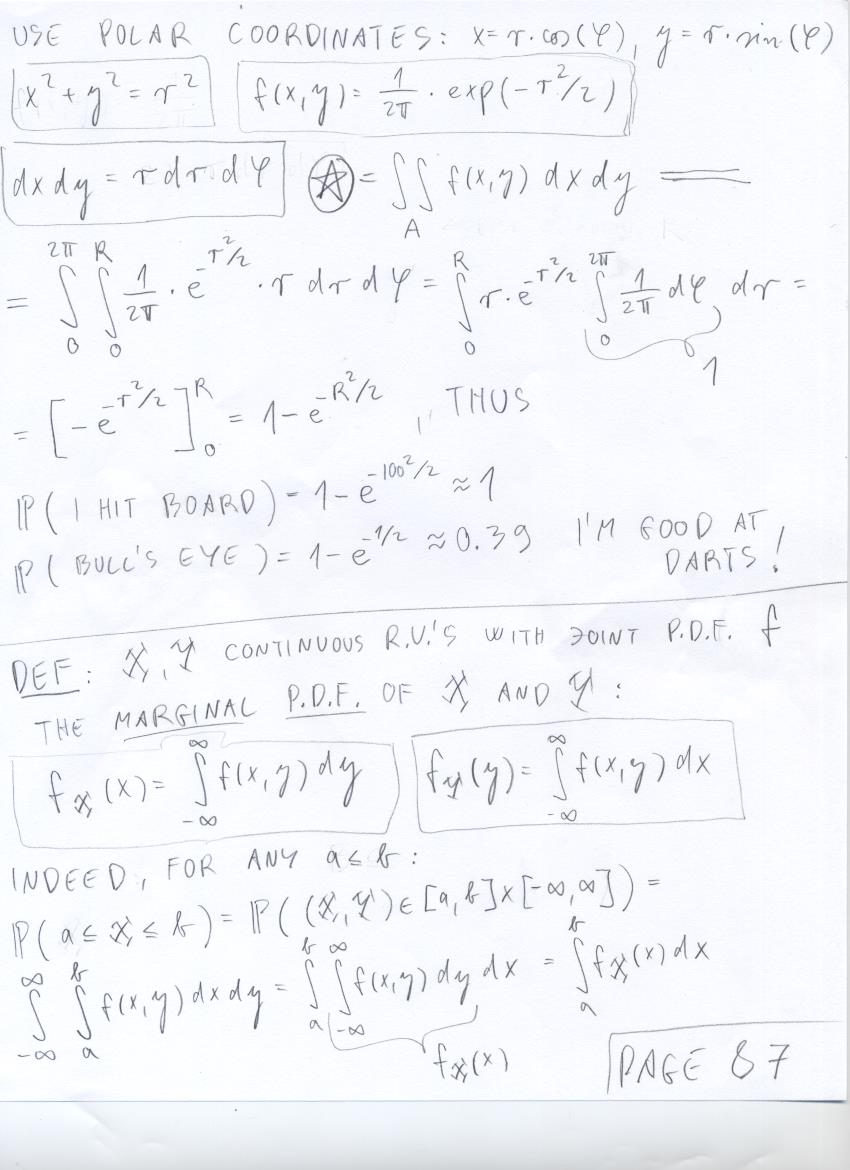 USE POLAR COORDINATES: x=r·cos(φ), y=r·sin(φ)
x²+y²=r² f(x,y)= 1/2π · exp(-r²/2)
dx dy = r dr dφ ☆ = ∬_A f(x,y) dx dy =
= ∫_0^2π ∫_0^R 1/2π · e^{-r²/2} · r dr dφ = ∫_0^R r·e^{-r²/2} ∫_0^2π 1/2π dφ dr =
1
= [-e^{-r²/2}]_0^R = 1-e^{-R²/2}, THUS
ℙ(I HIT BOARD) = 1-e^{-100²/2} ≈ 1
ℙ(BULL'S EYE) = 1-e^{-1/2} ≈ 0.39 I'M GOOD AT
DARTS!
DEF: X, Y CONTINUOUS R.V.'S WITH JOINT P.D.F. f
THE MARGINAL P.D.F. OF X AND Y:
f_X(x)= ∫_{-∞}^∞ f(x,y) dy f_Y(y)= ∫_{-∞}^∞ f(x,y) dx
INDEED, FOR ANY a≤b:
ℙ(a≤X≤b) = ℙ((X,Y)∈[a,b]×[-∞,∞]) =
∫_{-∞}^∞ ∫_a^b f(x,y) dx dy = ∫_a^b ∫_{-∞}^∞ f(x,y) dy dx = ∫_a^b f_X(x) dx
f_X(x)
PAGE 87